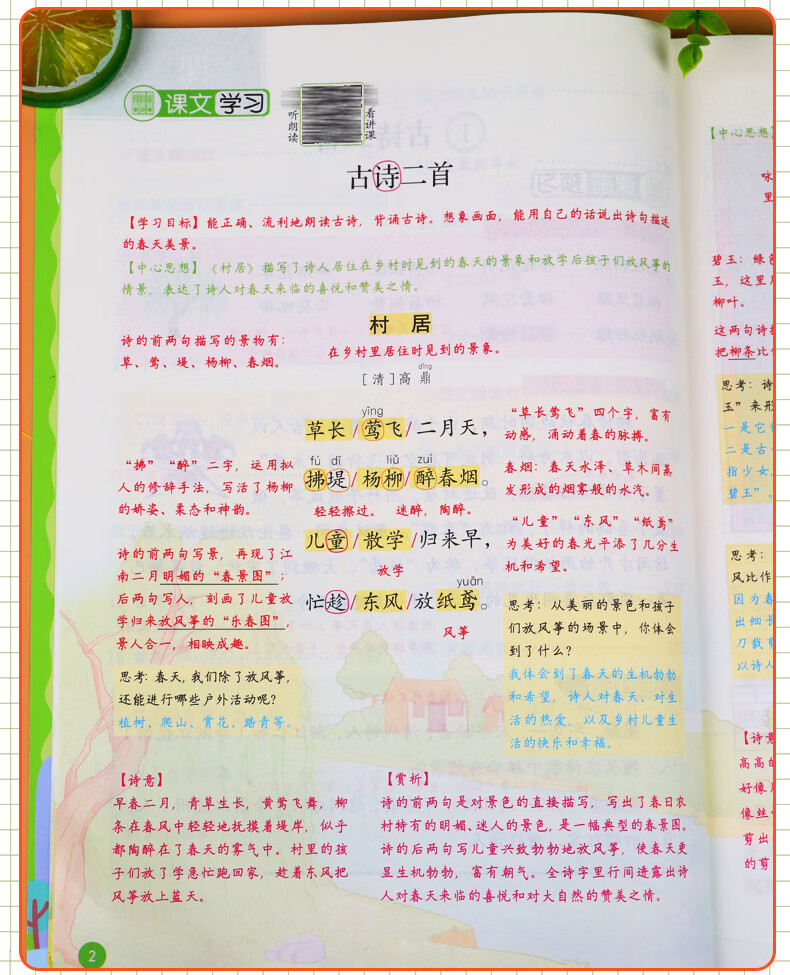 课文学习
听朗读
看讲课
古诗二首
【学习目标】能正确、流利地朗读古诗，背诵古诗。想象画面，能用自己的话说出诗句描述
的春天美景。
【中心思想】《村居》描写了诗人居住在乡村时见到的春天的景象和放学后孩子们放风筝的
情景，表达了诗人对春天来临的喜悦和赞美之情。
村 居
在乡村里居住时见到的景象。
dǐng
[清]高 鼎
诗的前两句描写的景物有：
草、莺、堤、杨柳、春烟。
yīng
草长/莺飞/二月天，
fú dī liǔ zuì
拂堤/杨柳/醉春烟。
轻轻擦过。 迷醉，陶醉。
儿童/散学/归来早，
放学
yuān
忙趁/东风/放纸鸢。
风筝
“拂”“醉”二字，运用拟
人的修辞手法，写活了杨柳
的娇姿、柔态和神韵。
诗的前两句写景，再现了江
南二月明媚的“春景图”；
后两句写人，刻画了儿童放
学归来放风筝的“乐春图”，
景人合一，相映成趣。
思考：春天，我们除了放风筝，
还能进行哪些户外活动呢？
植树、爬山、赏花、踏青等。
“草长莺飞”四个字，富有
动感，涌动着春的脉搏。
春烟：春天水泽、草木间蒸
发形成的烟雾般的水汽。
“儿童”、“东风”、“纸鸢”
为美好的春光平添了几分生
机和希望。
思考：从美丽的景色和孩子
们放风筝的场景中，你体会
到了什么？
我体会到了春天的生机勃勃
和希望，诗人对春天、对生
活的热爱，以及乡村儿童生
活的快乐和幸福。
【诗意】
早春二月，青草生长，黄莺飞舞，柳
条在春风中轻轻地抚摸着堤岸，似乎
都陶醉在了春天的雾气中。村里的孩
子们放了学急忙跑回家，趁着东风把
风筝放上蓝天。
【赏析】
诗的前两句是对景色的直接描写，写出了春日农
村特有的明媚、迷人的景色，是一幅典型的春景图。
诗的后两句写儿童兴致勃勃地放风筝，使春天更
显生机勃勃，富有朝气。全诗字里行间透露出诗
人对春天来临的喜悦和对大自然的赞美之情。
2
【中心思想】
咏
里
碧玉：绿色
玉，这里用
柳叶。
这两句诗把
把柳条比作
思考：诗
玉”来形
一是它
二是古
指少女，
碧玉”。
思考：
风比作
因为春
出细长
刀裁剪
以诗人
【诗意
高高的
好像用
像丝
剪出
的剪